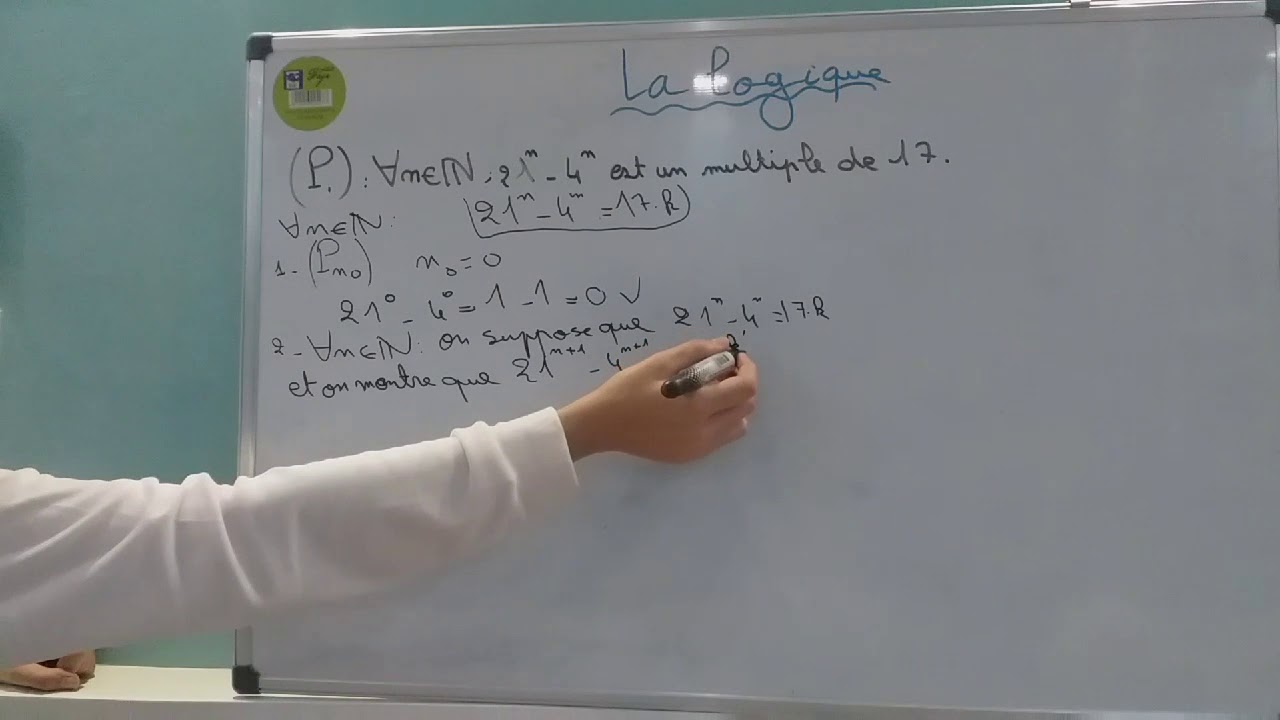 La Logique
(P.): ∀n∈ℕ, 21ⁿ - 4ⁿ est un multiple de 17.
∀n∈ℕ: 21ⁿ - 4ⁿ = 17.k
1- (Pn₀) n₀ = 0
21⁰ - 4⁰ = 1 - 1 = 0 √
2- ∀n∈ℕ: on suppose que 21ⁿ - 4ⁿ = 17.k
et on montre que 21ⁿ⁺¹ - 4ⁿ⁺¹